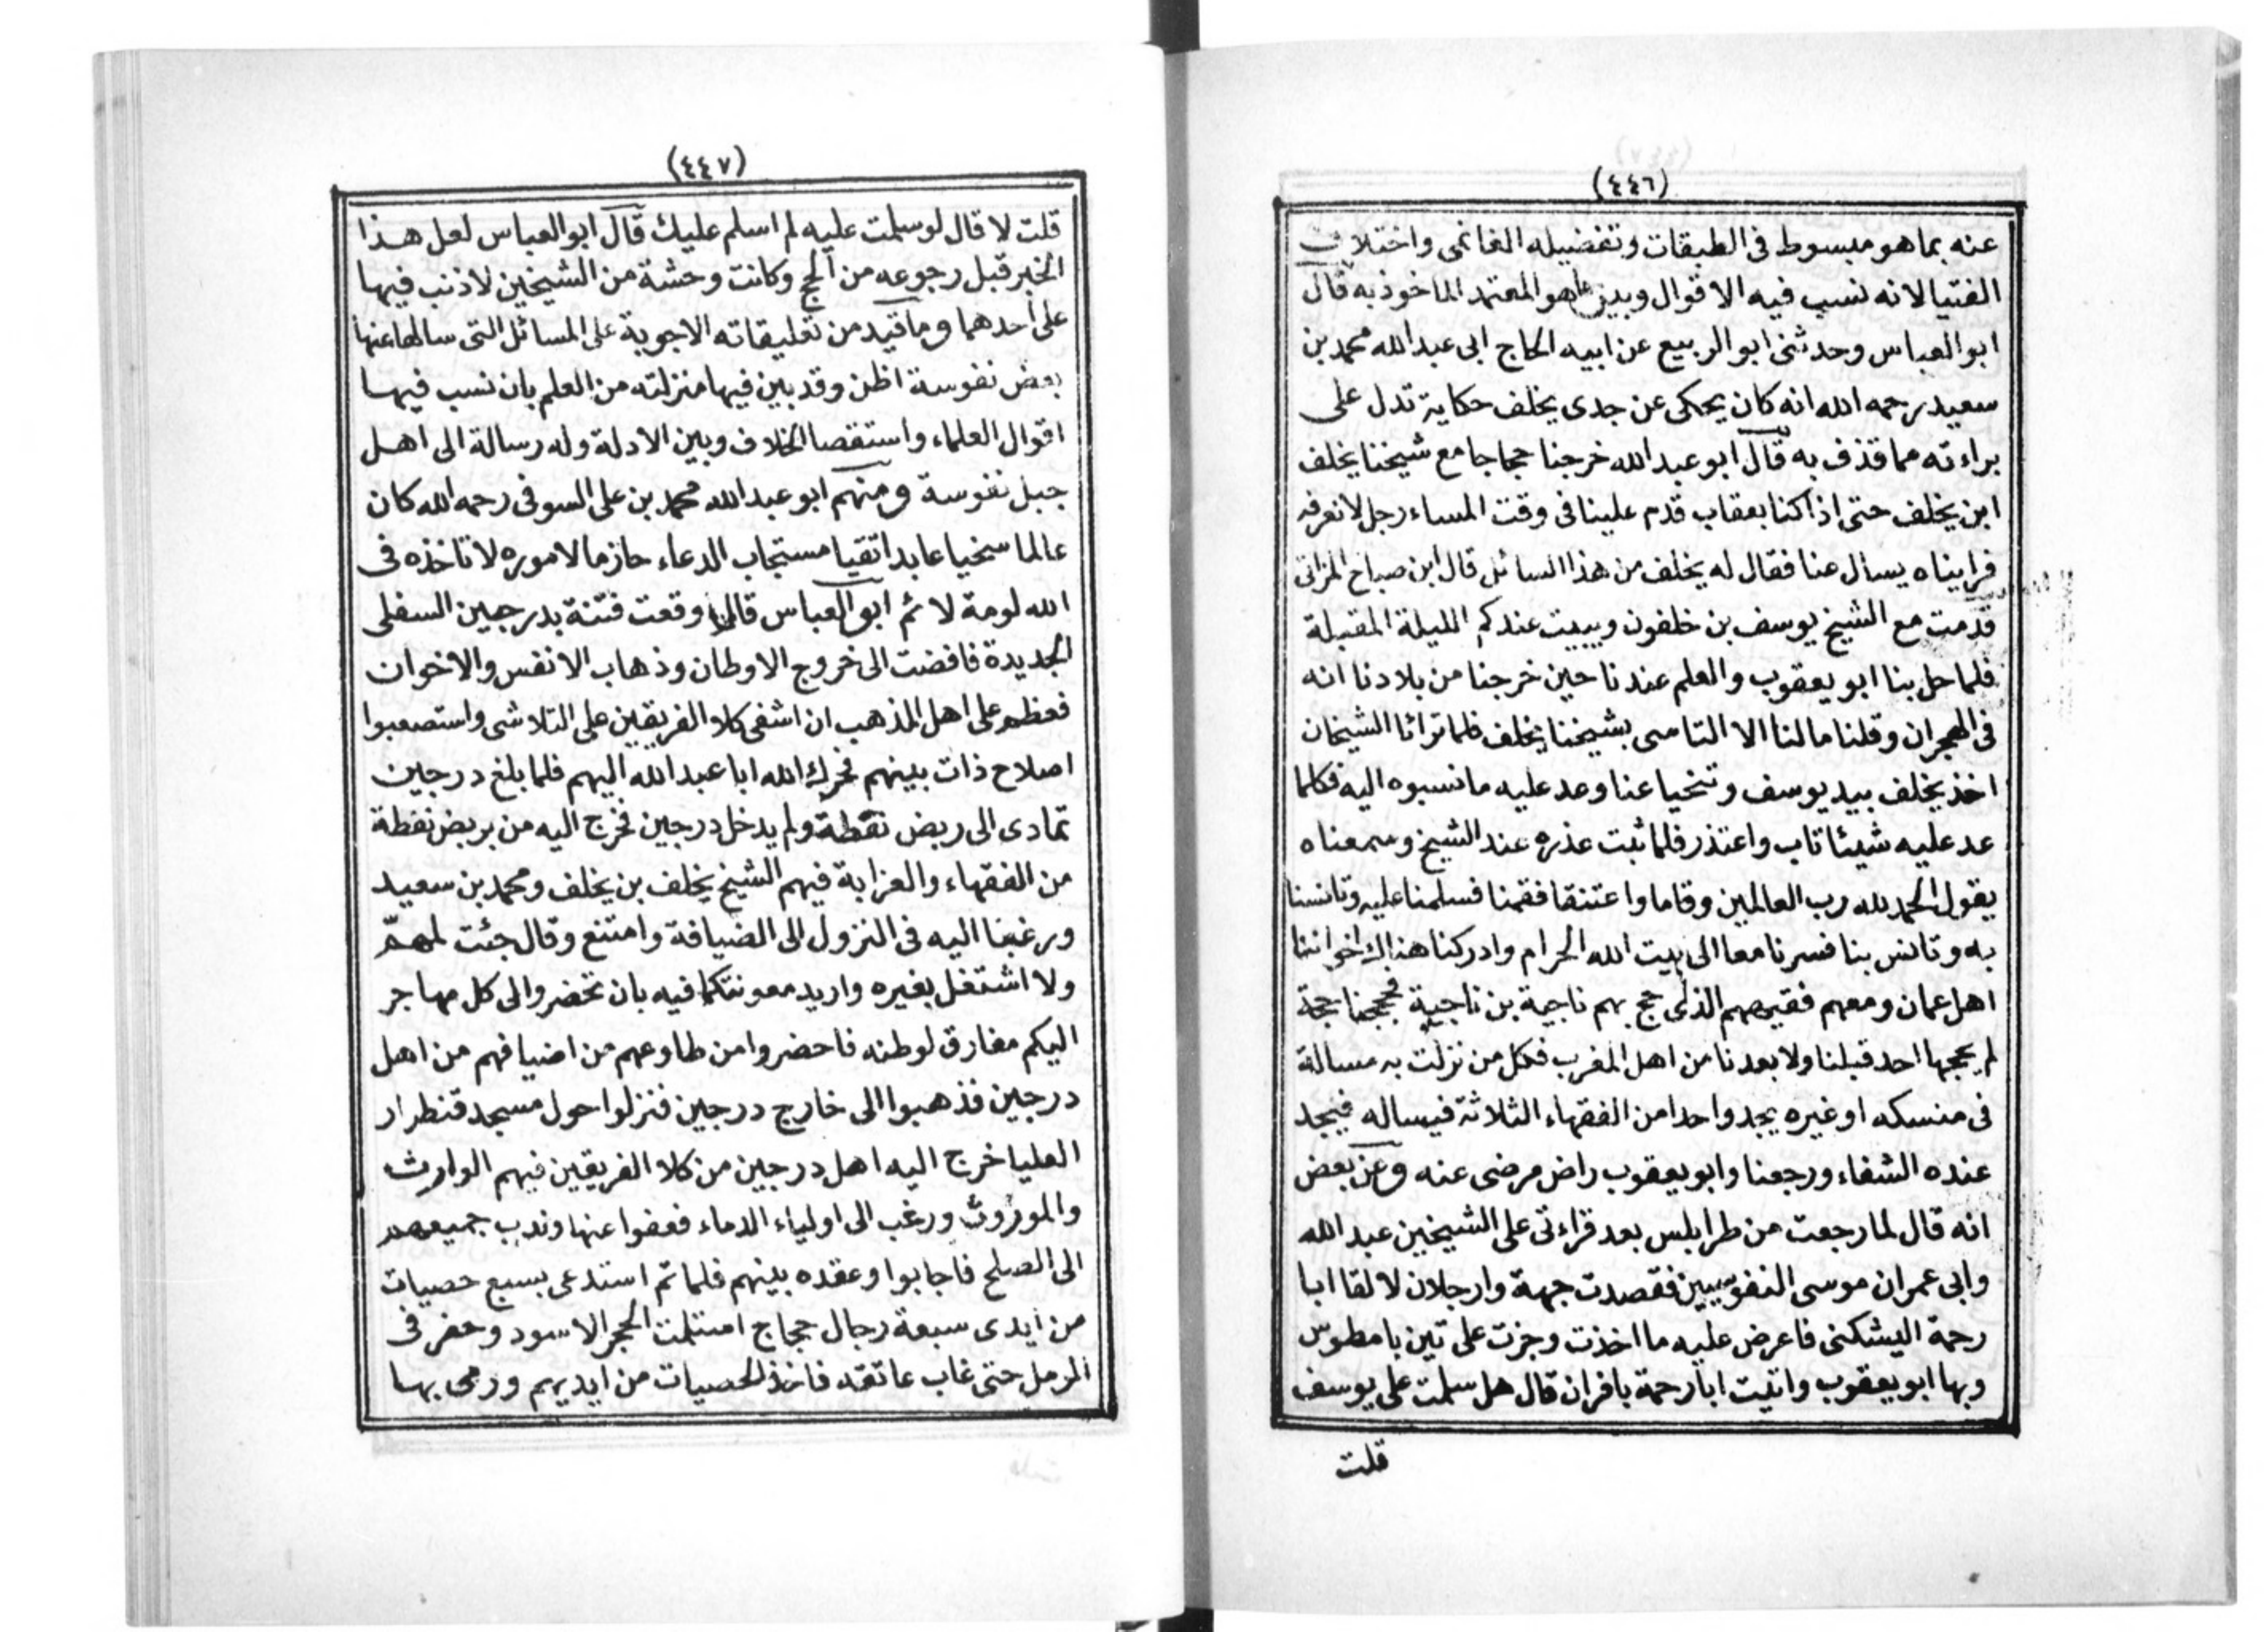 (٤٤٦)
عنه بما هو مبسوط فى الطبقات وتفضيله الغانمى واختلاف
الفتيا لانه نسب فيه الاقوال وبين ما هو المعتمد الماخوذ به قال
ابو العباس وحدثنى ابو الربيع عن ابيه الحاج ابى عبد الله محمد بن
سعيد رحمه الله انه كان يحكى عن جدى يخلف حكاية تدل على
براءته مما قذف به قال ابو عبد الله خرجنا حجاجا مع شيخنا يخلف
ابن يخلف حتى اذا كنا بعقاب قدم علينا فى وقت المساء رجل لا نعرفه
فرايناه يسال عنا فقال له يخلف من هذا السائل قال ابن صباح المزاتى
قدمت مع الشيخ يوسف بن خلفون ويبيت عندكم الليلة المقبلة
فلما حل بنا ابو يعقوب والعلم عندنا حين خرجنا من بلادنا انه
فى الهجران وقلنا مالنا الا التاسى بشيخنا يخلف فلما تراءا الشيخان
اخذ يخلف بيد يوسف وتنحيا عنا وعد عليه ما نسبوه اليه فكلما
عد عليه شيئا تاب واعتذر فلما ثبت عذره عند الشيخ وسمعناه
يقول الحمد لله رب العالمين وقاما واعتنقا فقمنا فسلمنا عليه وتانسنا
به وتانس بنا فسرنا معا الى بيت الله الحرام وادركنا هناك اخواننا
اهل عمان ومعهم فقيههم الذى حج بهم ناجية بن ناجية فحججنا حجة
لم يحجها احد قبلنا ولا بعدنا من اهل المغرب فكل من نزلت به مسالة
فى منسكه او غيره يجد واحدا من الفقهاء الثلاثة فيساله فيجد
عنده الشفاء ورجعنا وابو يعقوب راض مرضى عنه وعن بعض
انه قال لما رجعت من طرابلس بعد قراءتى على الشيخين عبد الله
وابى عمران موسى النفوسيين فقصدت جهة وارجلان لالقا ابا
رحمة اليشكنى فاعرض عليه ما اخذت وجزت على تين بامطوس
وبها ابو يعقوب واتيت ابا رحمة بافران قال هل سلمت على يوسف
قلت
(٤٤٧)
قلت لا قال لو سلمت عليه لم اسلم عليك قال ابو العباس لعل هذا
الخبر قبل رجوعه من الحج وكانت وحشة من الشيخين لا ذنب فيها
على احدهما وما قيد من تعليقاته الاجوبة على المسائل التى سالها عنها
بعض نفوسة اظن وقد بين فيها منزلته من العلم بان نسب فيها
اقوال العلماء واستقصا الخلاف وبين الادلة وله رسالة الى اهل
جبل نفوسة ومنهم ابو عبد الله محمد بن على السوفى رحمه الله كان
عالما سخيا عابدا تقيا مستجاب الدعاء حازما لاموره لا تاخذه فى
الله لومة لائم ابو العباس قال لما وقعت فتنة بدرجين السفلى
الجديدة فافضت الى خروج الاوطان وذهاب الانفس والاخوان
فعظم على اهل المذهب ان اشفى كلا الفريقين على التلاشى واستصعبوا
اصلاح ذات بينهم فحرك الله ابا عبد الله اليهم فلما بلغ درجين
تمادى الى ربض نفطة ولم يدخل درجين فخرج اليه من بربض نفطة
من الفقهاء والعزابة فيهم الشيخ يخلف بن يخلف ومحمد بن سعيد
ورغبا اليه فى النزول الى الضيافة وامتنع وقال جئت لمهمّ
ولا اشتغل بغيره واريد معونتكما فيه بان تحضروا لى كل مهاجر
اليكم مفارق لوطنه فاحضروا من طاوعهم من اضيافهم من اهل
درجين فذهبوا الى خارج درجين فنزلوا حول مسجد قنطرار
العليا خرج اليه اهل درجين من كلا الفريقين فيهم الوارث
والموروث ورغب الى اولياء الدماء فعفوا عنها وندب جميعهم
الى الصلح فاجابوا وعقده بينهم فلما تم استدعى بسبع حصيات
من ايدى سبعة رجال حجاج استلمت الحجر الاسود وحفر فى
الرمل حتى غاب عاتقه فاخذ الحصيات من ايديهم ورمى بها